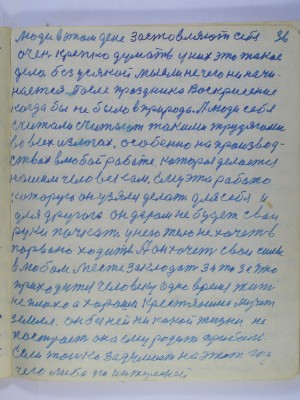 Люди в этом деле заставляют себя 36
очен крепко думать у них это такое
дело без усякой мысли нечего не начи-
нается После праздника Воскрисение
когда бы не было в природа. А люди себя
считали считают такими трудягами
во всех изломах, особенно на производ-
ствах в любой работе которая делается
нашим человекам. Ему эта работа
которую он узяли делат для себя и
для другого он даром не будет свои
руки пачкать у него тоже не хочеть в
порвано ходить А он хочет свои силы
в любом месте закладат За то за это
приходится человеку одно время жить
не плохо а хорошо Крестянина мучит
земля. он бы ней ни какой жизни не
построит она ему родит прибыль
Сам только задумает на этот год
чего либо